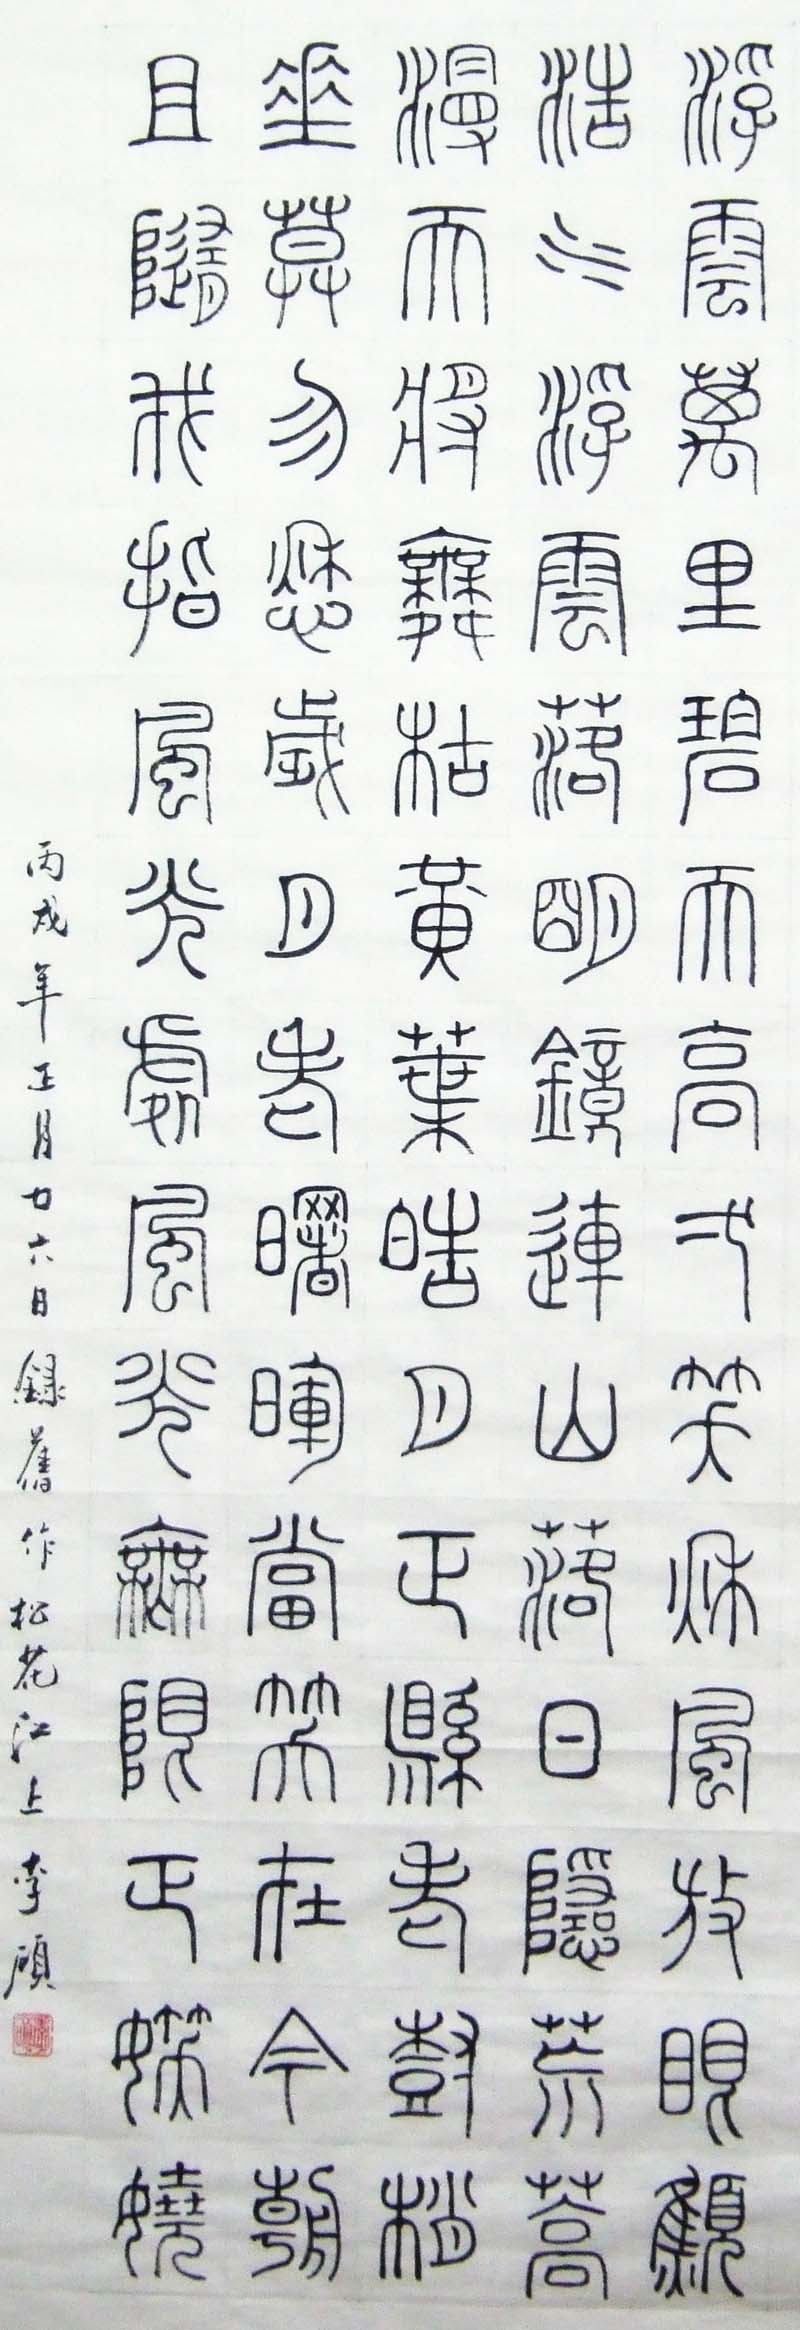 浮雲萬里碧天高笑秋風放眼
浩水浮雲落明鏡連山落日隱荒蒿
漫天將舞枯黃葉皓月正縣老樹梢
垂暮勿愁歲月老曙暉當笑在今朝
且隨我指風光處風光無限正妖嬈
丙戌年正月廿六日錄舊作松花江上李碩